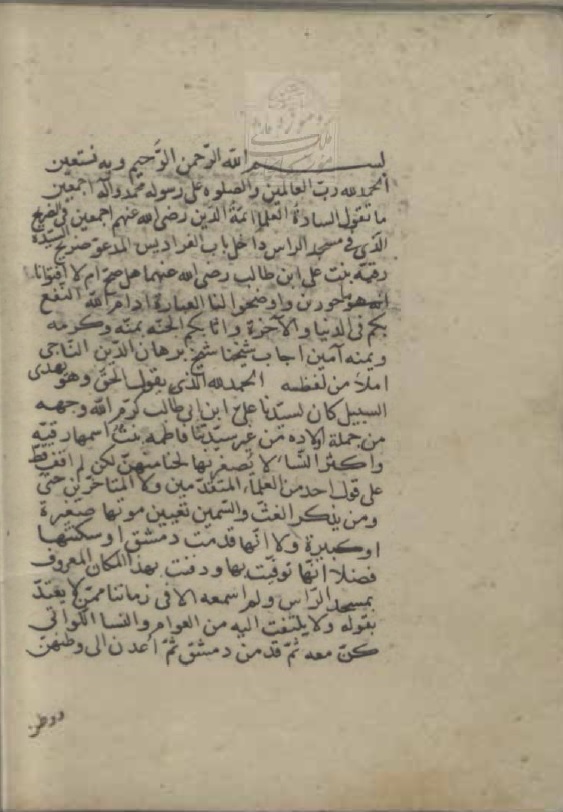 بسم الله الرحمن الرحيم وبه نستعين
الحمد لله رب العالمين والصلوه على رسوله محمد واله اجمعين
ما تقول السادة العلما ائمة الدين رضى الله عنهم اجمعين فى الضريح
الذى فى مسجد الراس داخل باب الفراديس المدعو ضريح السيدة
رقيه بنت على ابن طالب رضى الله عنهما هل صح ام لا افتونا
ماجورين واوضحوا لنا العبارة ادام الله النفع
بكم فى الدنيا والآخرة واثابكم الجنه بمنه وكرمه
ويمنه آمين اجاب شيخنا شيخ برهان الدين الناجى
املاءً من لفظه الحمد لله الذى يقول الحق وهو يهدى
السبيل كان لسيدنا على ابن ابى طالب كرم الله وجهه
من جملة اولاده من غير سيدتنا فاطمه بنت اسمها رقيه
واكثر النسا لا يصغرنها لحنا منهن لكن لم اقف قط
على قول احد من العلماء المتقدمين ولا المتاخرين حتى
ومن يذكر الغث والسمين تعيين موتها صغيرة
او كبيرة ولا انها قدمت دمشق او سكنتها
فضلا انها توفيت بها ودفنت بهذا المكان المعروف
بمسجد الراس ولم اسمعه الا فى زماننا ممن لا يعتد
بقوله ولا يلتفت اليه من العوام والنسا اللواتى
كن معه ثم قدمن دمشق ثم أعدن الى وطنهن